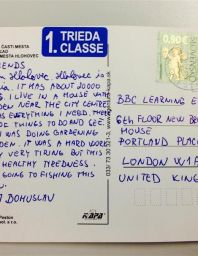 1. TRIEDA
CLASSE
ČASTI MESTA
MESTA HLOHOVEC
0,90 €
ENDS
HLOHOVEC. HLOHOVEC IS
IA. IT HAS ABOUT 20000
I LIVE IN A HOUSE WITH
DEN NEAR THE CITY CENTRE
AS EVERYTHING I NEED. THERE
OF THINGS TO DO AND SEE
I WAS DOING GARDENING
DEN. IT WAS A HARD WORK
VERY TIRING BUT THIS
HEALTHY TIREDNESS.
GOING TO FISHING THIS
BOHUSLAV
BBC LEARNING E
6th FLOOR NEW BR
HOUSE
PORTLAND PLACE
LONDON W1A
UNITED KING
RAPA